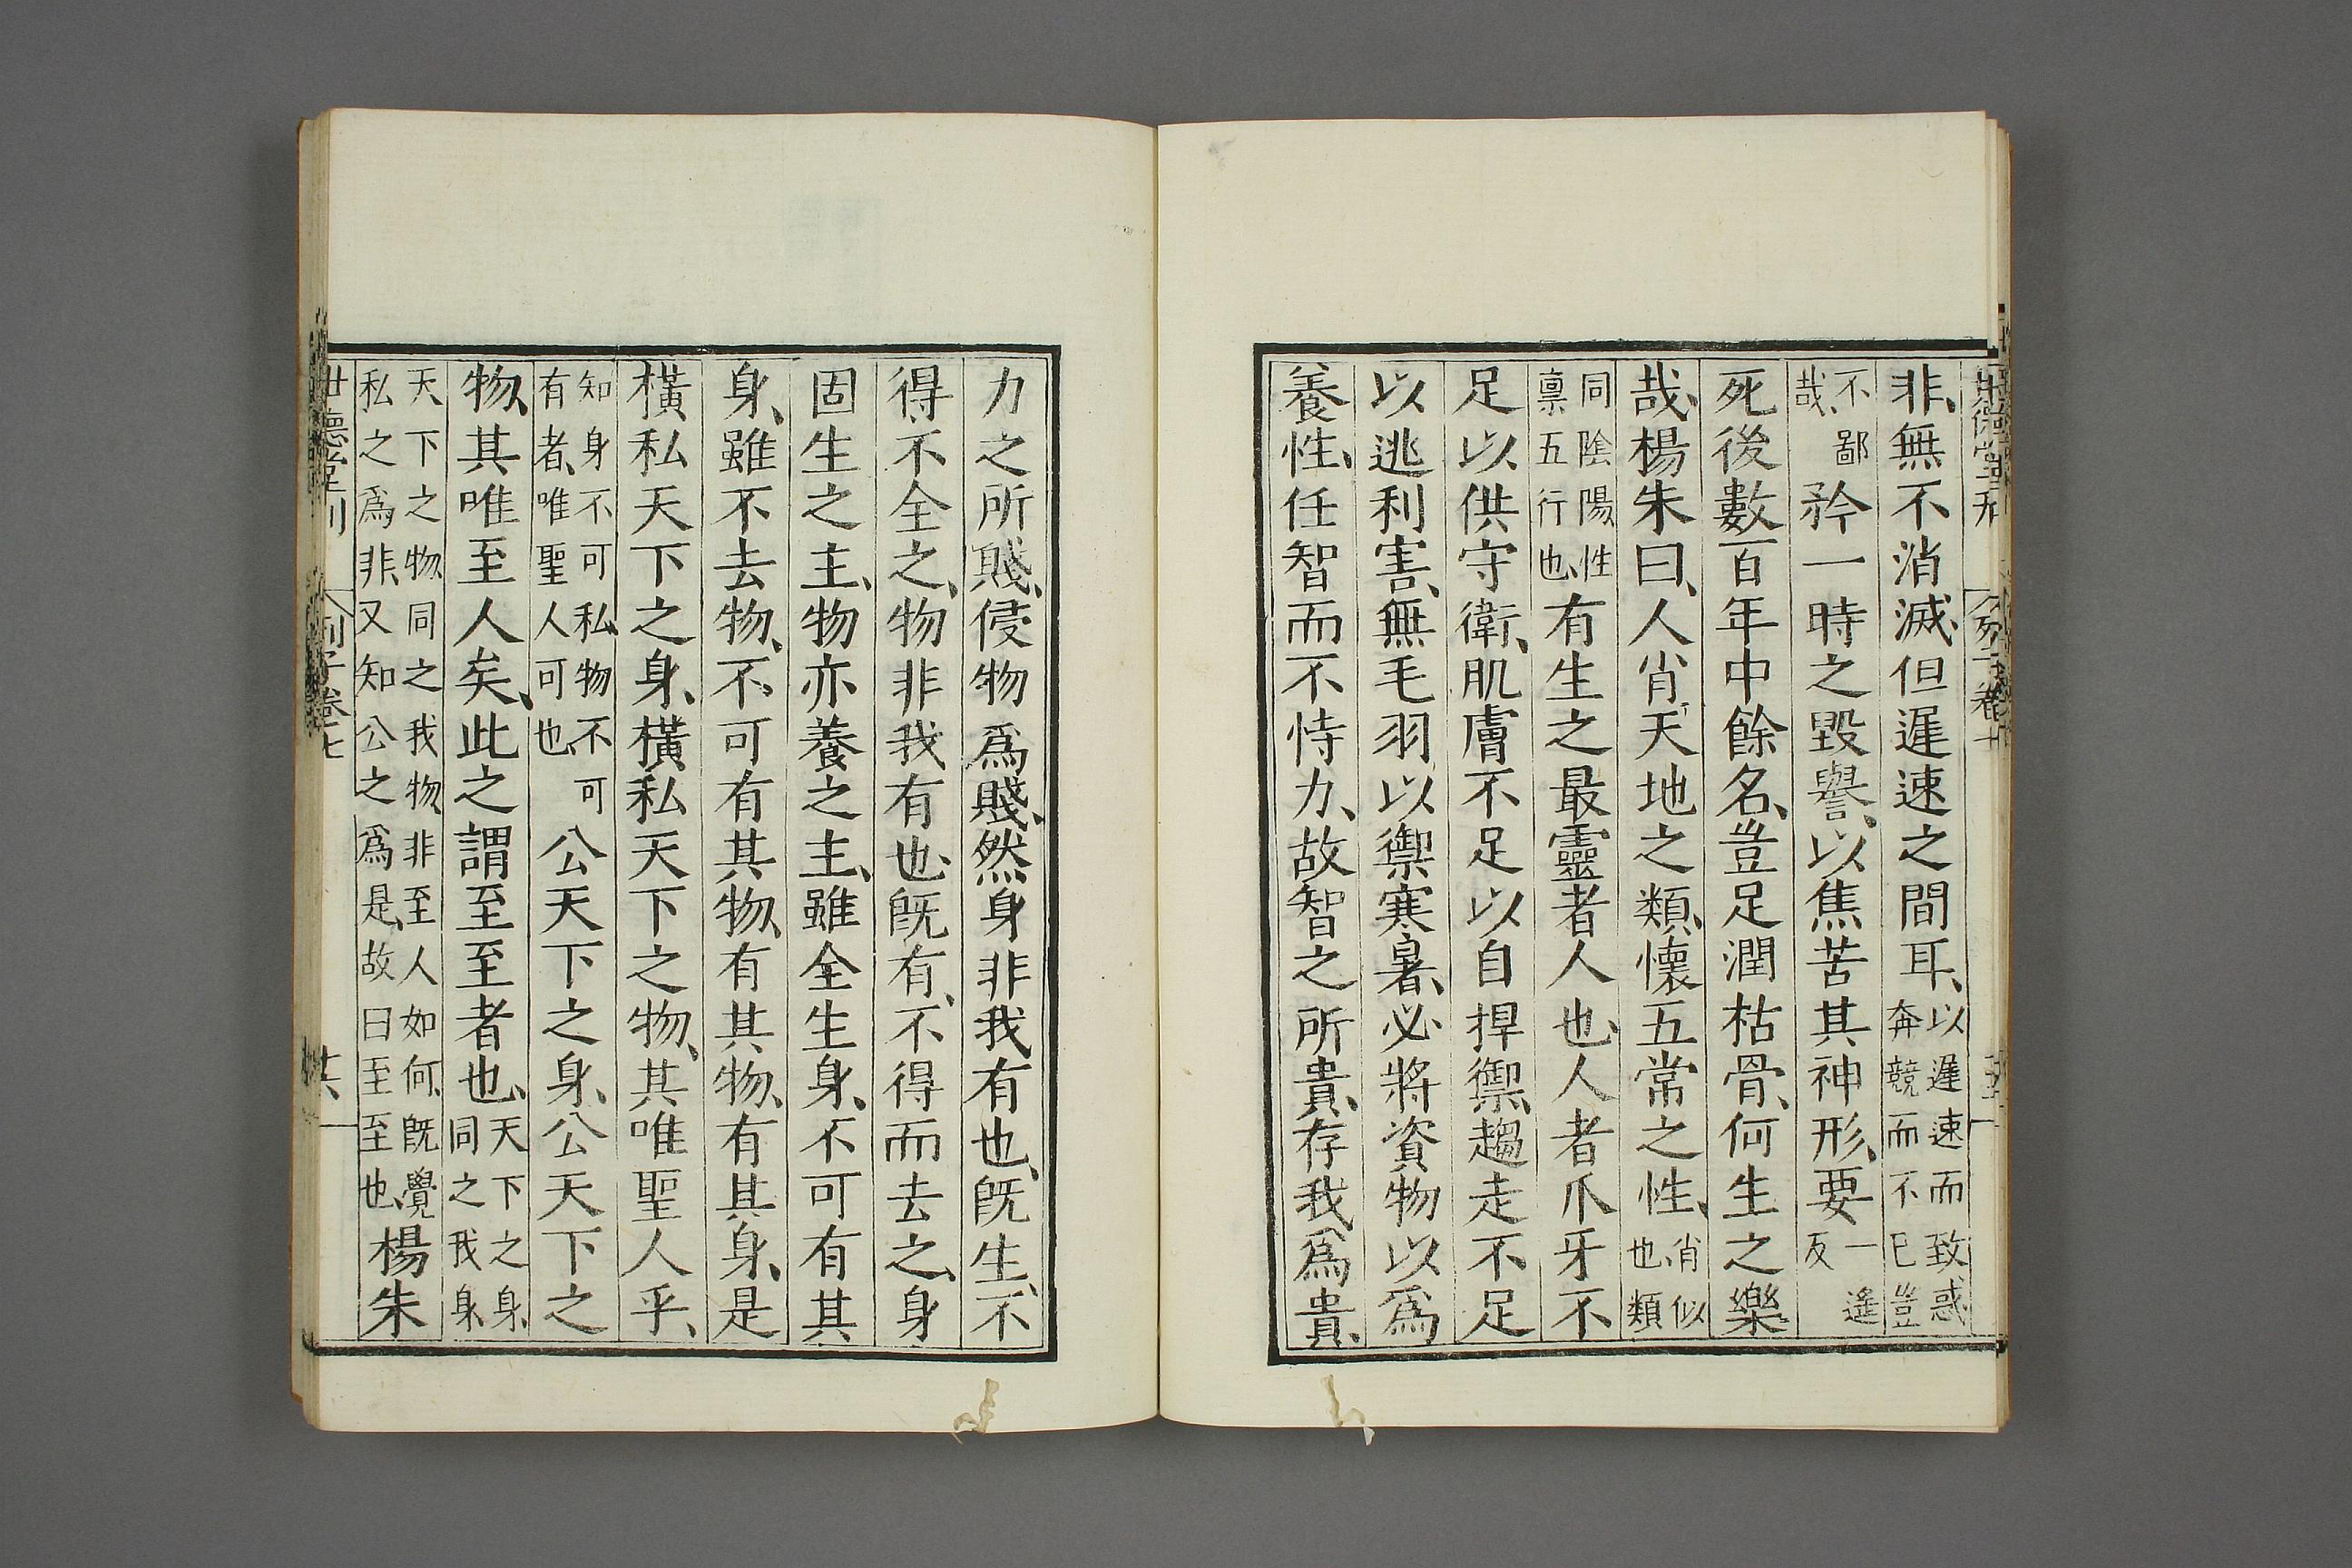 非、無不消滅、但遲速之間耳、以遲速而致惑奔競而不已豈
不鄙哉、矜一時之毀譽、以焦苦其神形、要一遙反
死後數百年中餘名、豈足潤枯骨、何生之樂
哉、楊朱曰、人肖天地之類、懷五常之性、肖似也類
同陰陽性稟五行也、有生之最靈者人也、人者爪牙不
足以供守衛、肌膚不足以自捍禦、趨走不足
以逃利害、無毛羽以禦寒暑、必將資物以爲
養性、任智而不恃力、故智之所貴、存我爲貴、
力之所賤、侵物爲賤、然身非我有也、既生、不
得不全之、物非我有也、既有、不得而去之、身
固生之主、物亦養之主、雖全生身、不可有其
身、雖不去物、不可有其物、有其物、有其身、是
橫私天下之身、橫私天下之物、其唯聖人乎、
知身不可私物不可有者、唯聖人可也、公天下之身、公天下之
物、其唯至人矣、此之謂至至者也、天下之身、同之我身、
天下之物、同之我物、非至人如何、既覺私之爲非、又知公之爲是、故曰至至也、楊朱
世德堂刊
列子卷七